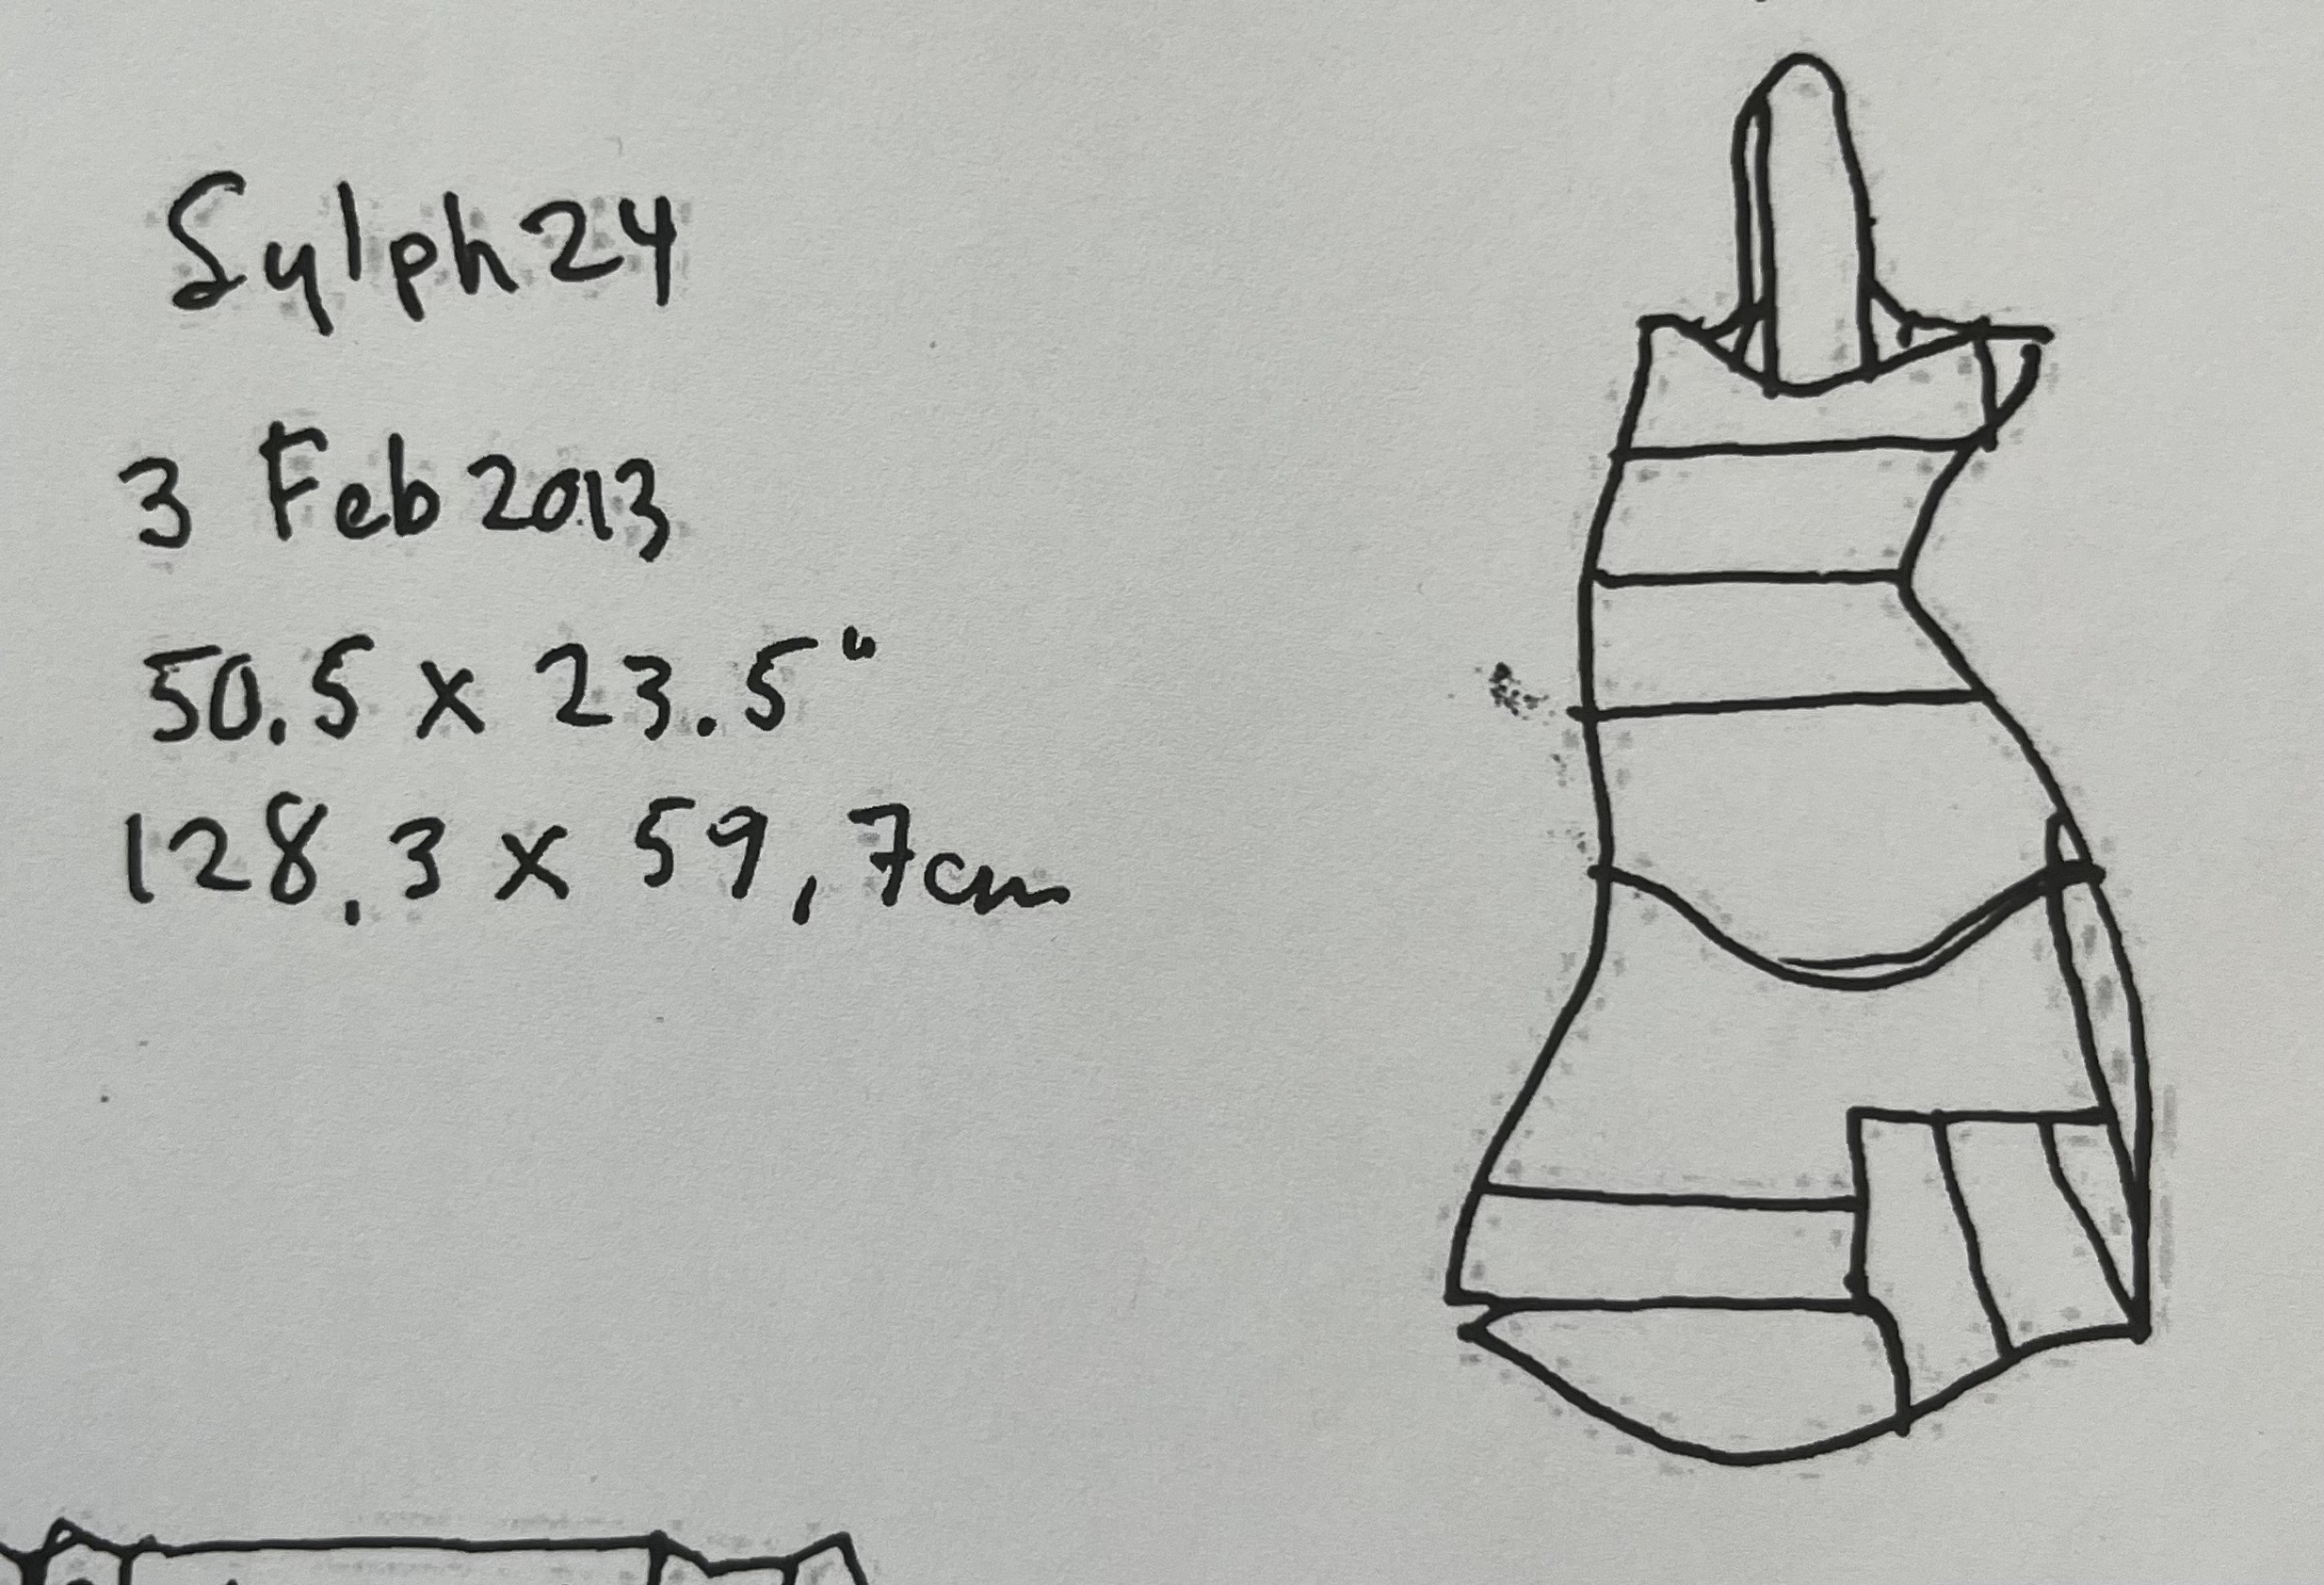 Sylph 24
3 Feb 2013
50.5 x 23.5"
128.3 x 59,7cm